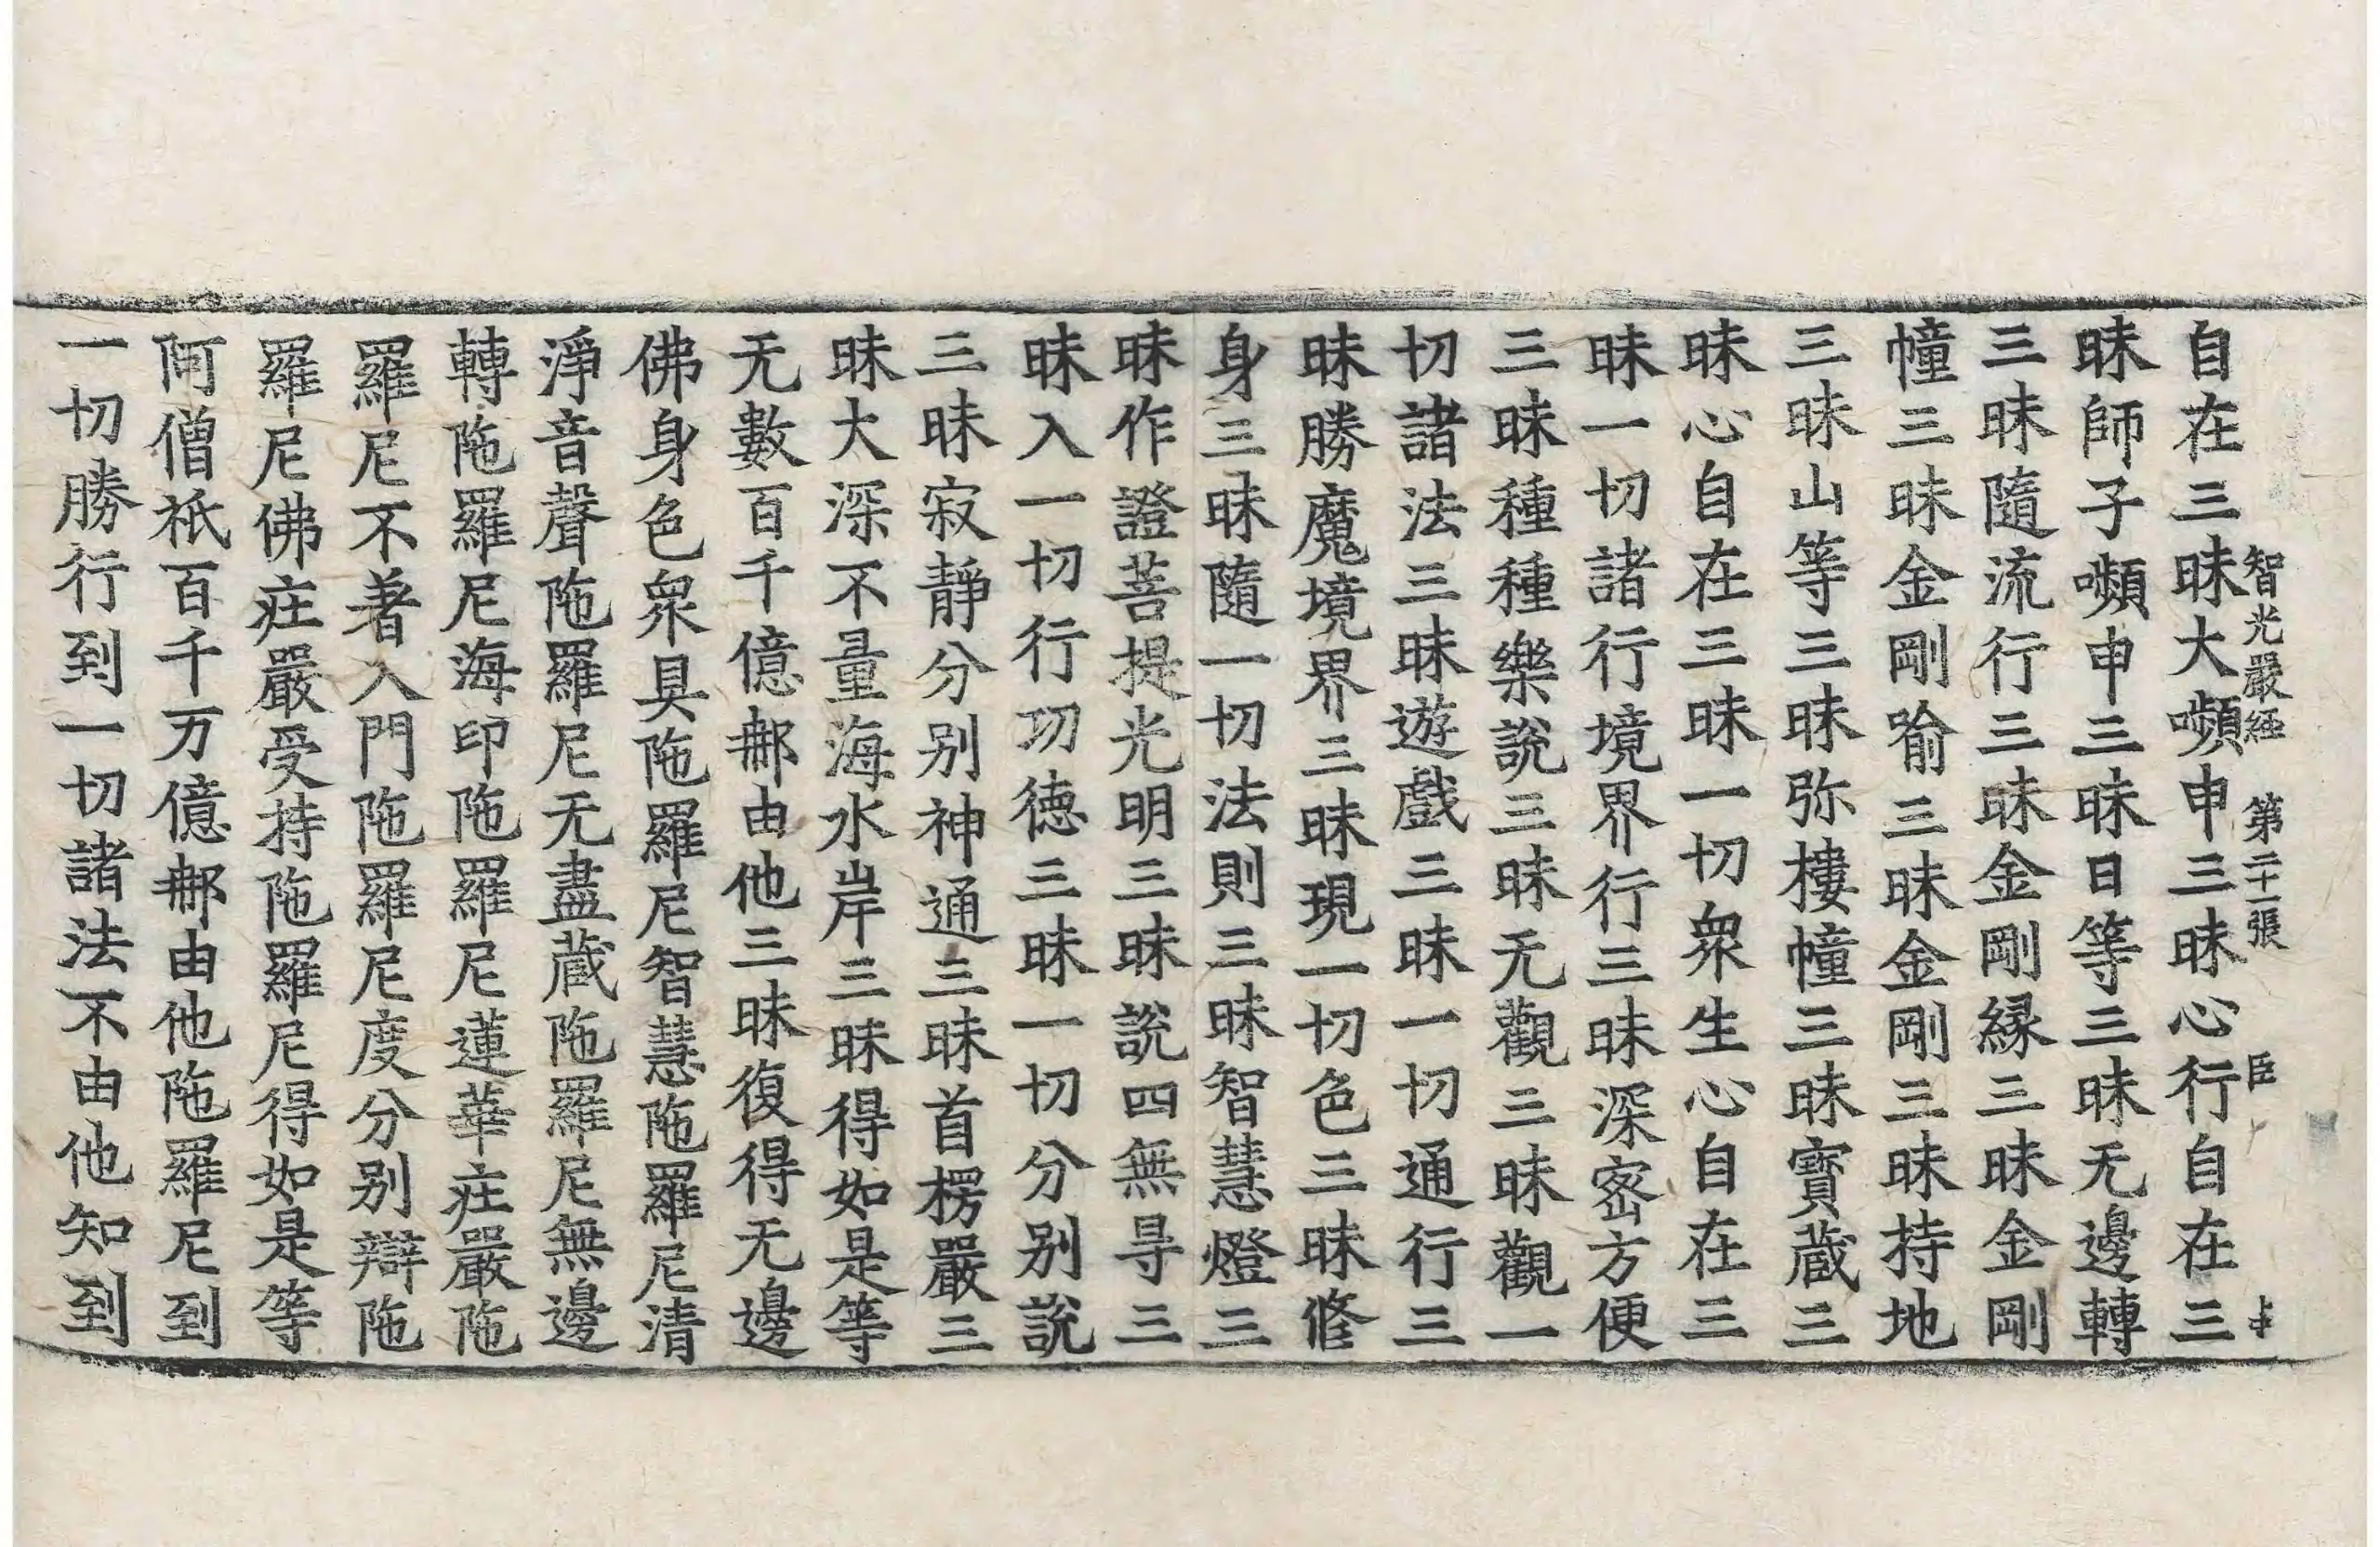 智光嚴経 第二十一張 臣
自在三昧大嚬申三昧心行自在三
昧師子嚬申三昧日等三昧无邊轉
三昧隨流行三昧金剛縁三昧金剛
幢三昧金剛喻三昧金剛三昧持地
三昧山等三昧弥樓幢三昧寶蔵三
昧心自在三昧一切衆生心自在三
昧一切諸行境界行三昧深密方便
三昧種種樂說三昧无觀三昧觀一
切諸法三昧遊戲三昧一切通行三
昧勝魔境界三昧現一切色三昧修
身三昧隨一切法則三昧智慧燈三
昧作證菩提光明三昧說四無㝵三
昧入一切行功徳三昧一切分別說
三昧寂靜分別神通三昧首楞嚴三
昧大深不量海水岸三昧得如是等
无數百千億𨚗由他三昧復得无邊
佛身色衆具陁羅尼智慧陁羅尼清
淨音聲陁羅尼无盡蔵陁羅尼無邊
轉陁羅尼海印陁羅尼蓮華庄嚴陁
羅尼不著入門陁羅尼度分別辯陁
羅尼佛庄嚴受持陁羅尼得如是等
阿僧祇百千万億𨚗由他陁羅尼到
一切勝行到一切諸法不由他知到